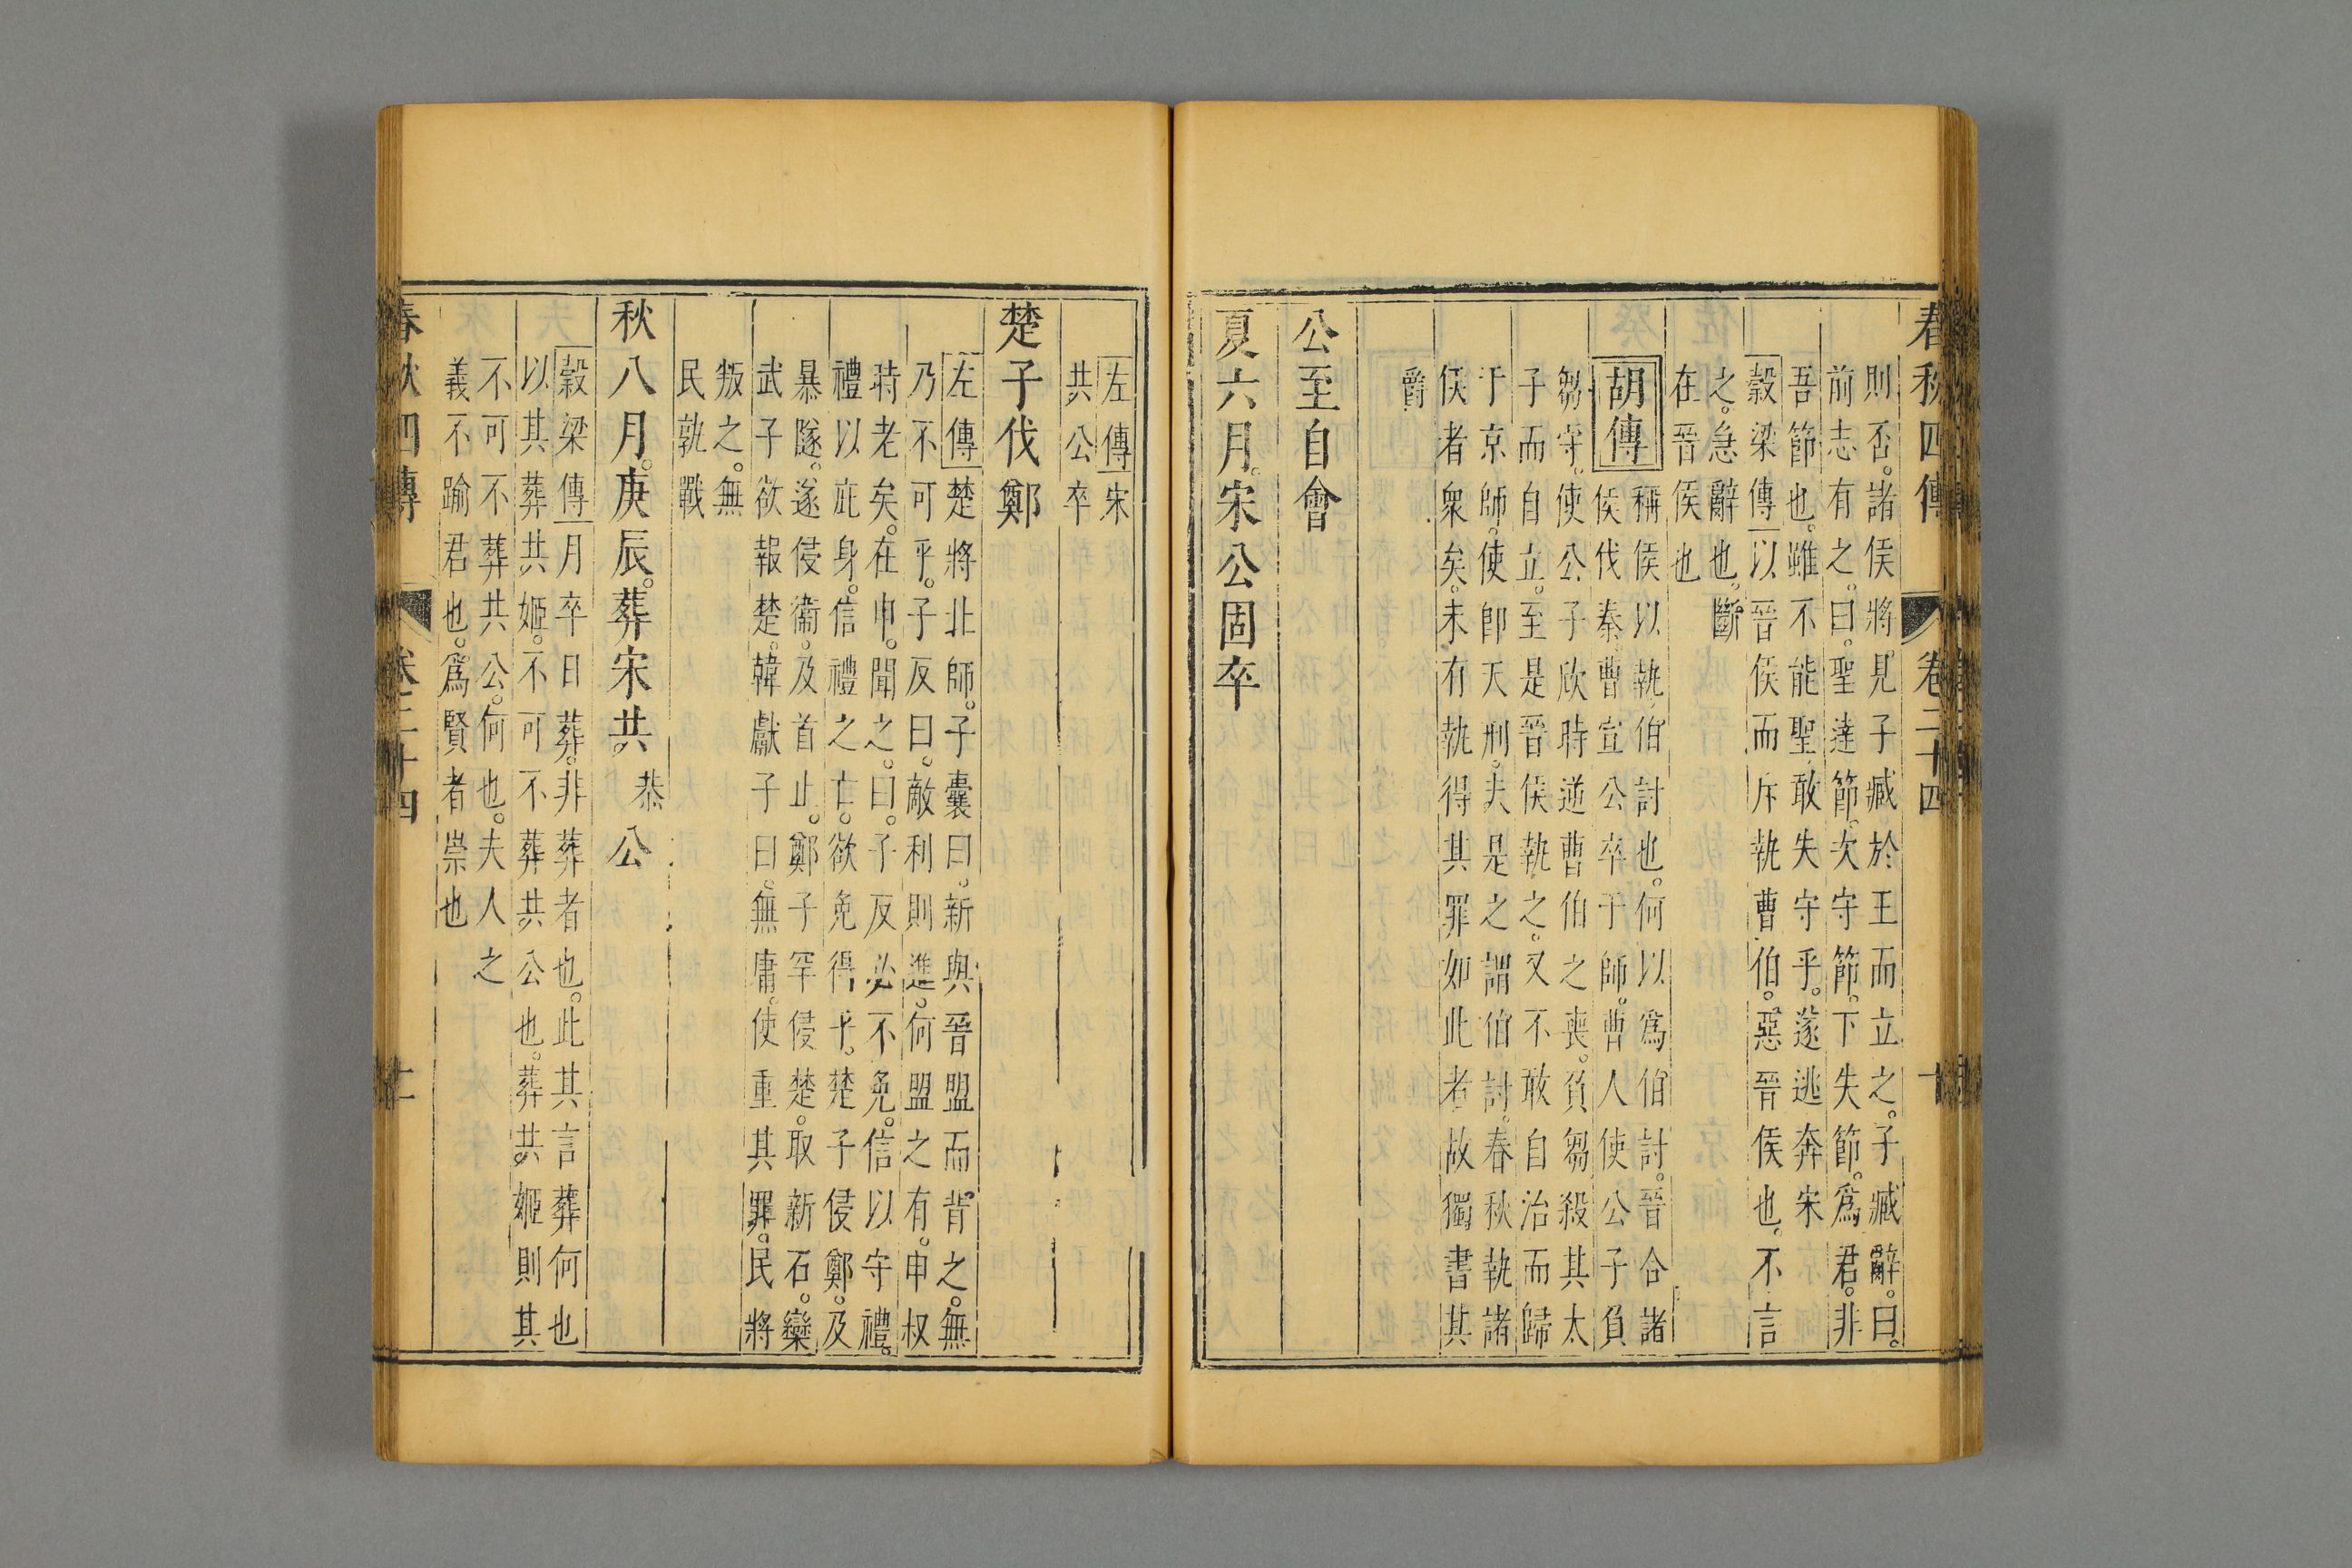 春秋四傳 卷二十四 十
則否。諸侯將見子臧於王而立之。子臧辭。曰。
前志有之。曰。聖達節。次守節。下失節。爲君。非
吾節也。雖不能聖。敢失守乎。遂逃奔宋
穀梁傳 以晉侯而斥執曹伯。惡晉侯也。不言
之。急辭也。斷
在晉侯也
胡傳 稱侯以執。伯討也。何以爲伯討。晉合諸
侯伐秦。曹宣公卒于師。曹人使公子負
芻守。使公子欣時逆曹伯之喪。負芻殺其太
子而自立。至是晉侯執之。又不敢自治而歸
于京師。使卽天刑。夫是之謂伯討。春秋執諸
侯者衆矣。未有執得其罪如此者。故獨書其
爵
公至自會
夏六月。宋公固卒
左傳 宋
共公卒
楚子伐鄭
左傳 楚將北師。子囊曰。新與晉盟而背之。無
乃不可乎。子反曰。敵利則進。何盟之有。申叔
時老矣。在申。聞之。曰。子反必不免。信以守禮。
禮以庇身。信禮之亡。欲免得乎。楚子侵鄭。及
暴隧。遂侵衞。及首止。鄭子罕侵楚。取新石。欒
武子欲報楚。韓獻子曰。無庸。使重其罪。民將
叛之。無
民孰戰
秋八月。庚辰。葬宋共恭公
穀梁傳 月卒日葬。非葬者也。此其言葬何也
以其葬共姬。不可不葬共公也。葬共姬則其
不可不葬共公。何也。夫人之
義不踰君也。爲賢者崇也
春秋四傳 卷二十四 十一